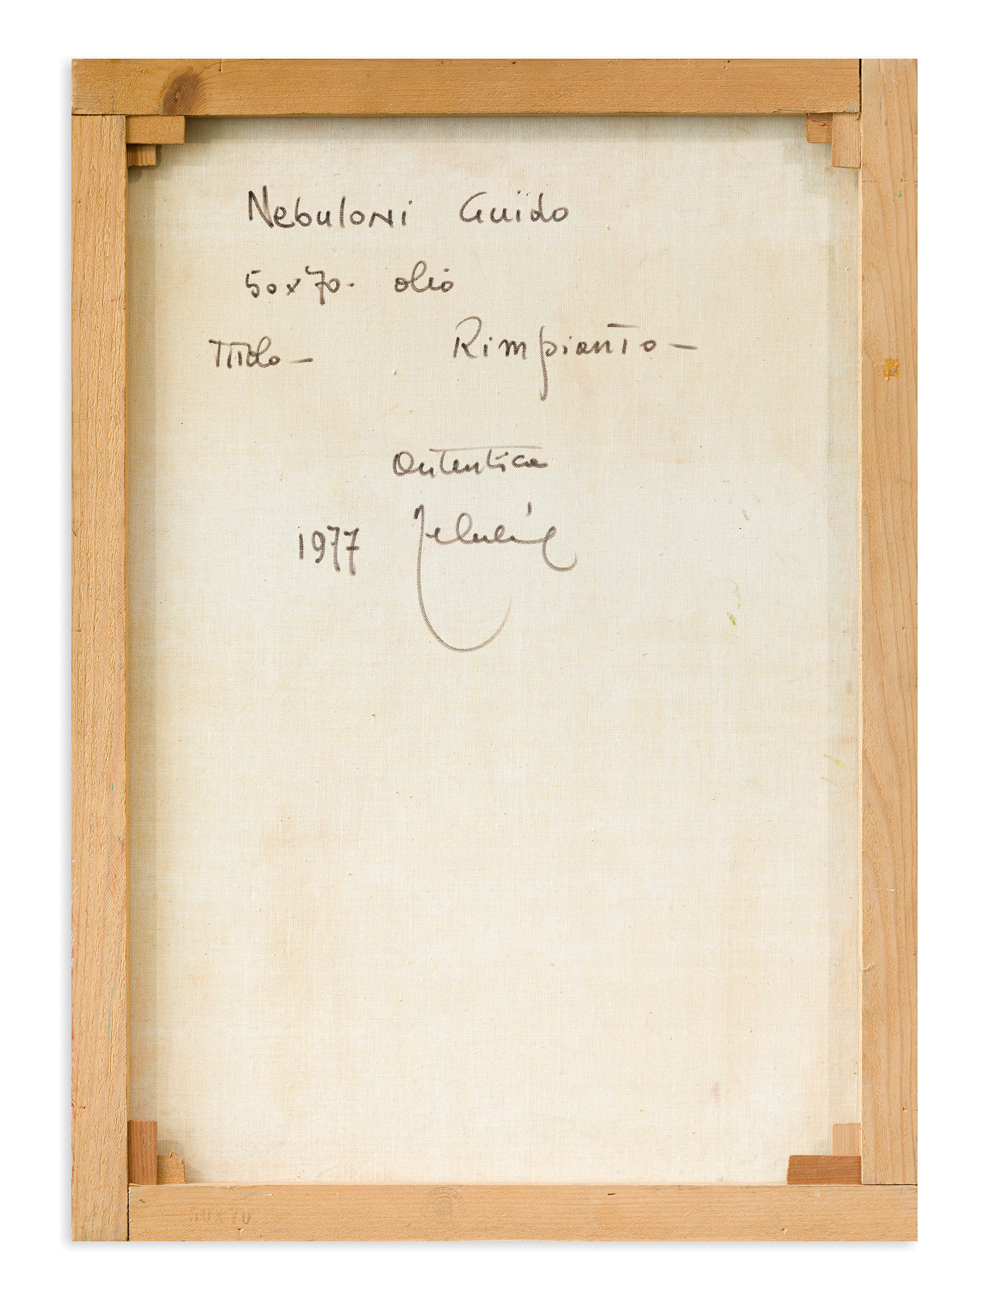 Nebuloni Guido
50x70- olio
Titolo - Rimpianto -
Autentica
1977
50x70